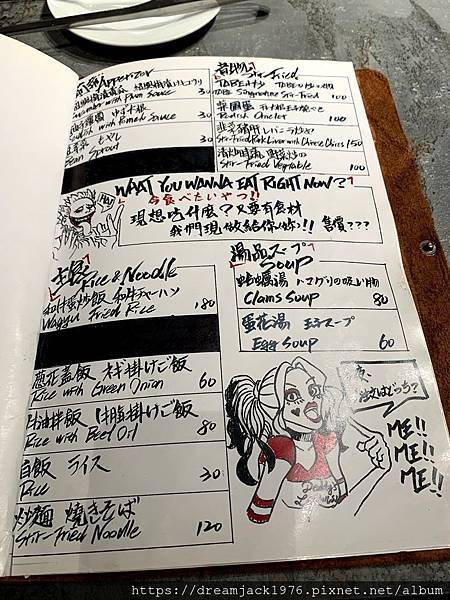 Appetizer
with Plum Sauce 30
with Kimchi Sauce 30
もやし
Bean Sprout 30
Stir-Fried
100
菜圃蛋
Radish Omelet 100
韭菜豬肝 レバニラ炒め
Stir-Fried Pork Liver with Chinese Chives 150
Stir-Fried Vegetable 100
HA!
WHAT YOU WANNA EAT RIGHT NOW?
今食べたいやつ!!
現想吃什麼?只要有食材
我們現做給你呦!! 售價???
主食 Rice & Noodle
和牛炒飯 和牛チャーハン
Wagyu Fried Rice 180
蔥花蓋飯 ネギ掛けご飯
Rice with Green Onion 60
牛油拌飯 牛脂掛けご飯
Rice with Beef Oil 80
白飯 ライス
Rice 30
炒麵 焼きそば
Stir-Fried Noodle 120
湯品 スープ
Soup
蛤蠣湯 ハマグリの吸い物
Clams Soup 80
蛋花湯 玉子スープ
Egg Soup 60
注文はどっち?
ME!!
ME!!
ME!!
Daddy's
https://dreamjack1976.pixnet.net/album